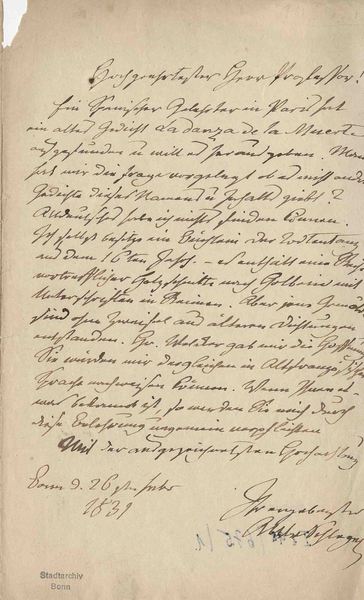 Hochgeehrtester Herr Professor!
Ein Spanischer Gelehrter in Paris hat
ein altes Gedicht La danza de la Muerte
aufgefunden u will es herausgeben. Man
hat mir die Frage vorgelegt ob es nicht andre
Gedichte dieses Namens u Inhalts giebt?
Altdeutsche habe ich nicht finden können.
Ich selbst besitze ein Büchlein der Todtentanz
aus dem 16ten Jahrh. – es enthält eine
vortrefflicher Holzschnitte nach Holbein mit
Unterschriften in Reimen. Aber jene Gemälde
sind ohne Zweifel aus älteren Dichtungen
entstanden. Hr. Welcker gab mir die Hoffnung
Sie würden mir dergleichen in Altfranzösischer
Sprache nachweisen können. Wenn Ihnen
was bekannt ist, so werden Sie mich durch
diese Belehrung ungemein verpflichten
Mit der ausgezeichnetsten Hochachtung
Bonn d. 26
1831
Ihr ergebenster
Schlegel
Stadtarchiv
Bonn